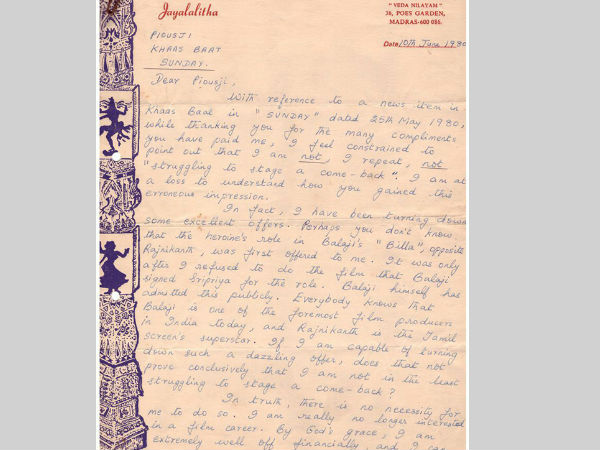 Jayalalitha
" VEDA NILAYAM "
36, POES GARDEN,
MADRAS-600 086.
Date 10th June 1980
PIOUSJI
KHAAS BAAT
SUNDAY.
Dear Piousji,
With reference to a news item in
Khaas Baat in "SUNDAY" dated 25th May 1980,
while thanking you for the many compliments
you have paid me, I feel constrained to
point out that I am not, I repeat, not
"struggling to stage a come-back". I am at
a loss to understand how you gained this
erroneous impression.
In fact, I have been turning down
some excellent offers. Perhaps you don't know
that the heroine's role in Balaji's "Billa", opposite
Rajnikanth, was first offered to me. It was only
after I refused to do the film that Balaji
signed Sripriya for the role. Balaji himself has
admitted this publicly. Everybody knows that
Balaji is one of the foremost film producers
in India today, and Rajnikanth is the Tamil
screen's superstar. If I am capable of turning
down such a dazzling offer, does that not
prove conclusively that I am not in the least
struggling to stage a come-back?
In truth, there is no necessity for
me to do so. I am really no longer interested
in a film career. By God's grace, I am
extremely well off financially, and I can